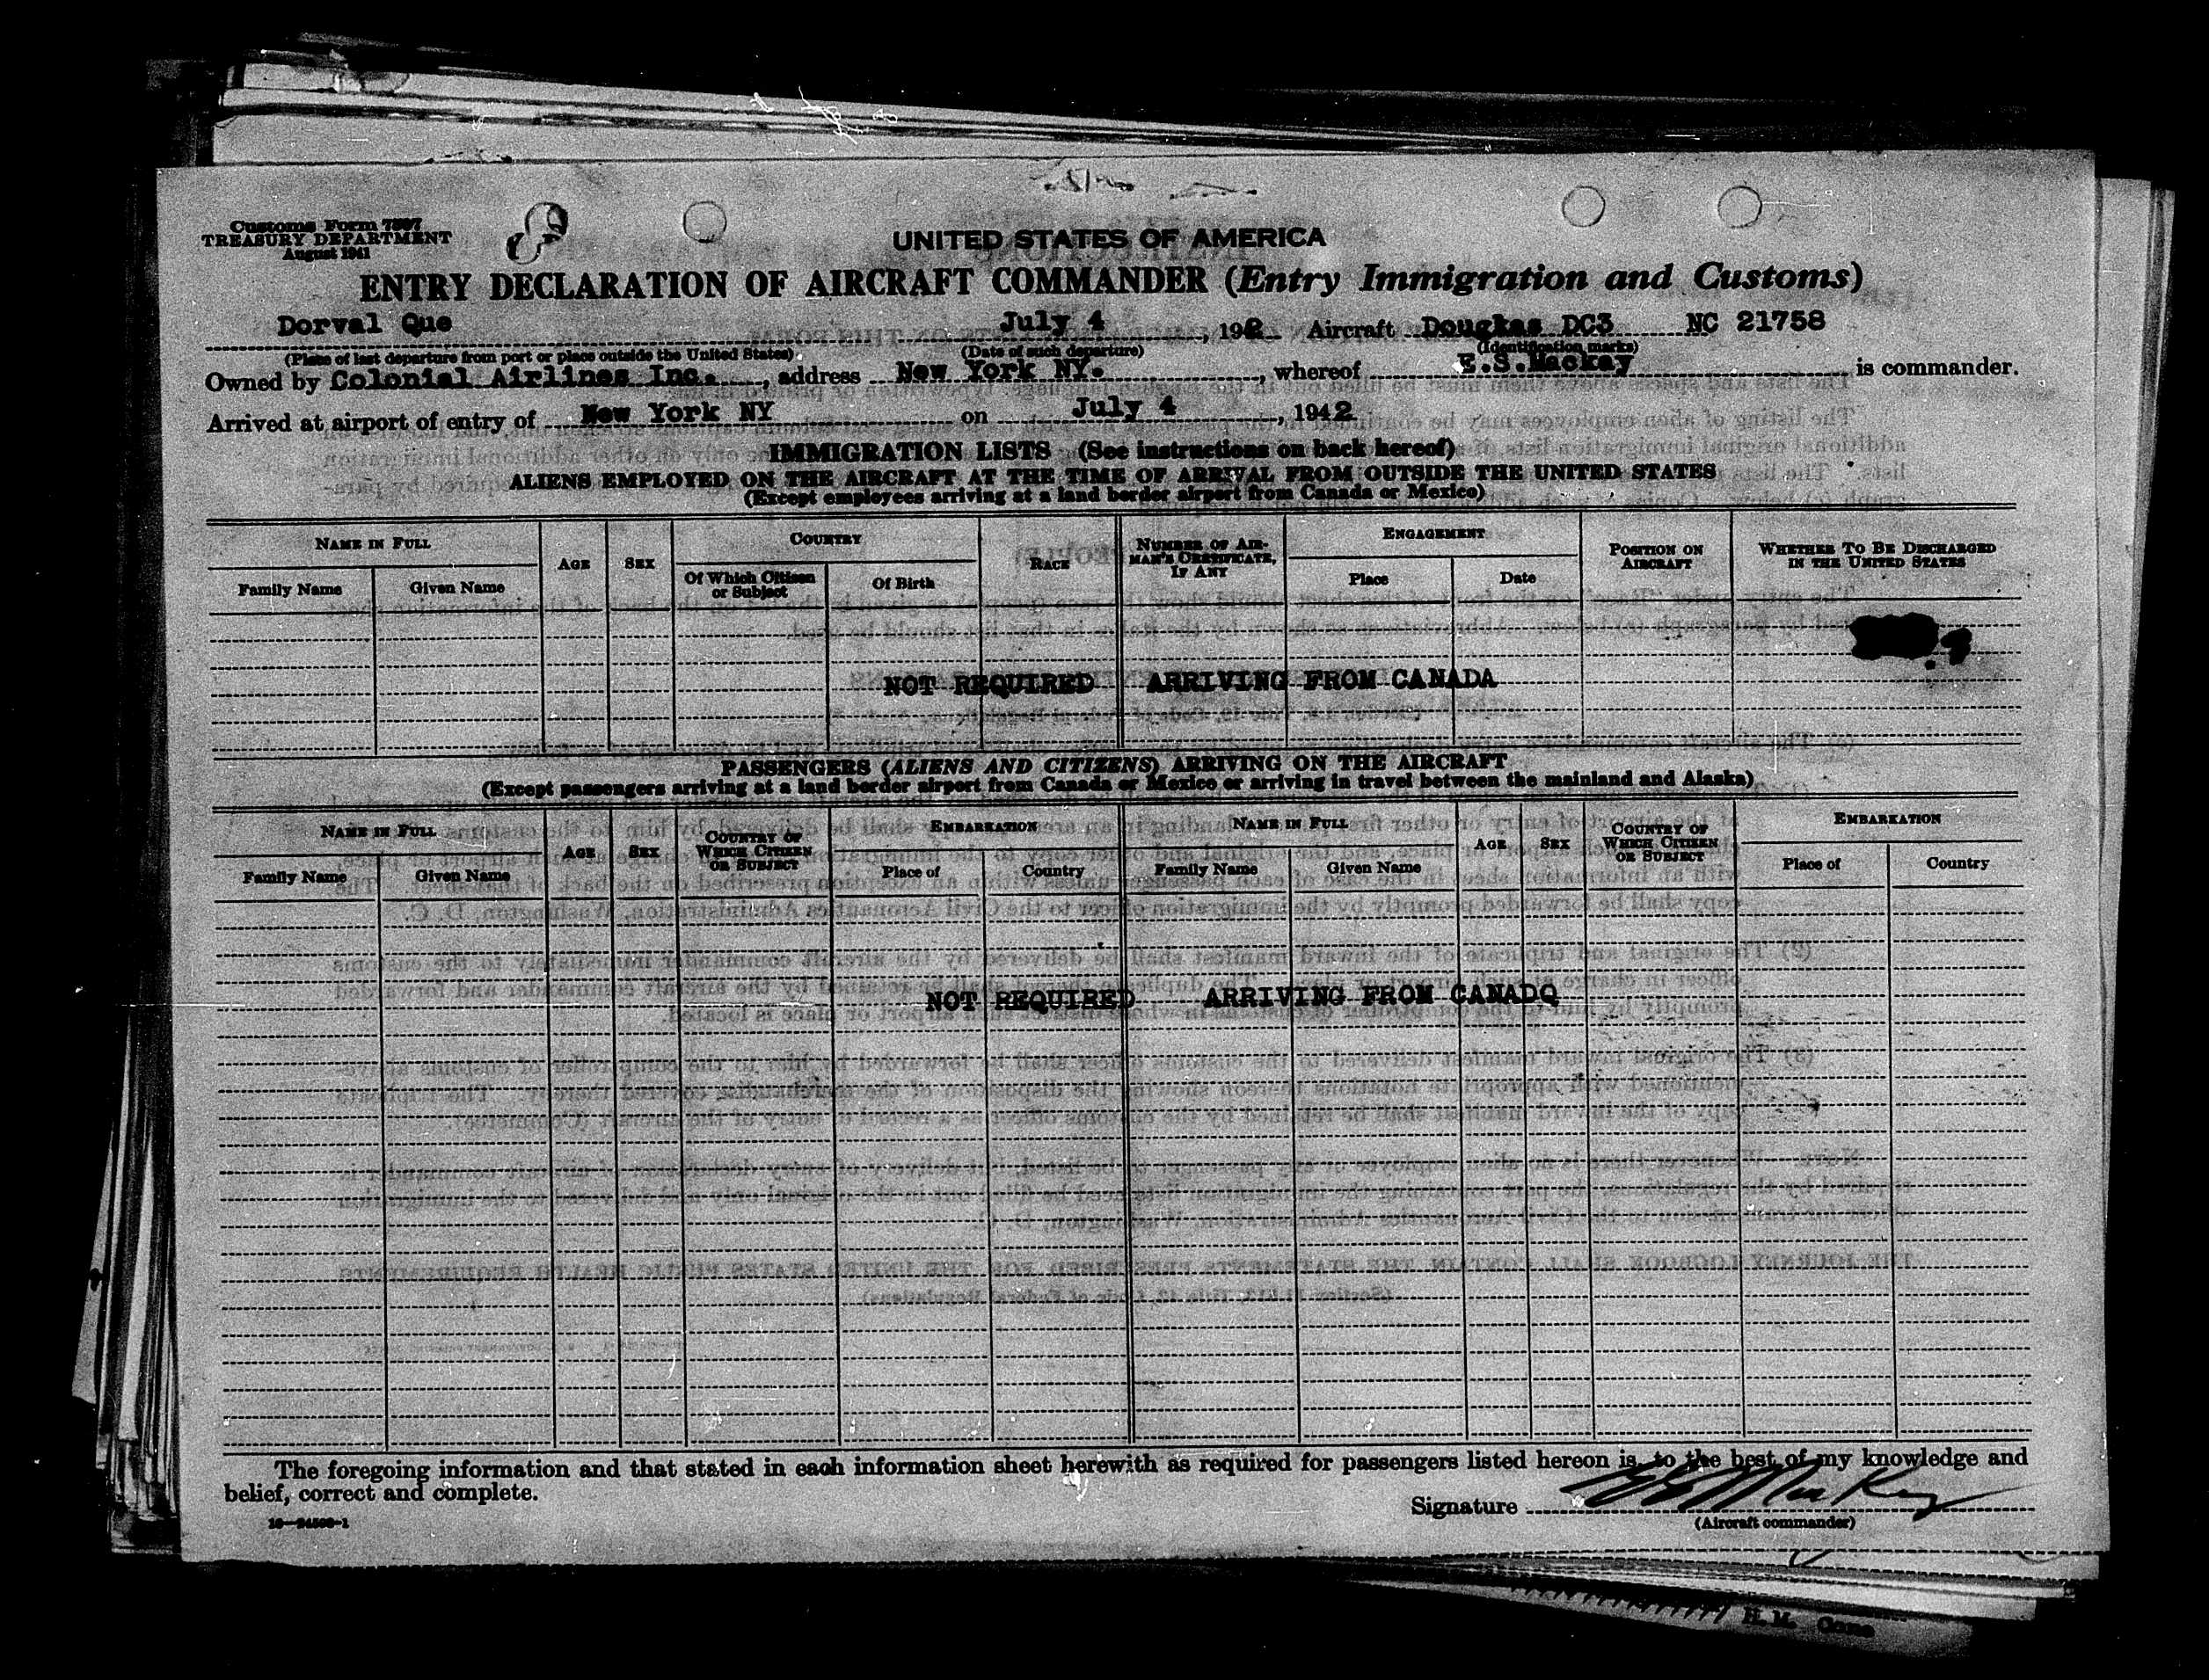 Customs Form 7507
TREASURY DEPARTMENT
August 1941
UNITED STATES OF AMERICA
ENTRY DECLARATION OF AIRCRAFT COMMANDER (Entry Immigration and Customs)
Dorval Que July 4, 1942 Aircraft Douglas DC3 NC 21758
(Place of last departure from port or place outside the United States) (Date of such departure) (Identification marks)
Owned by Colonial Airlines Inc., address New York NY., whereof E.S.Mackay is commander.
Arrived at airport of entry of New York NY on July 4, 1942
IMMIGRATION LISTS (See instructions on back hereof)
ALIENS EMPLOYED ON THE AIRCRAFT AT THE TIME OF ARRIVAL FROM OUTSIDE THE UNITED STATES
(Except employees arriving at a land border airport from Canada or Mexico)
NAME IN FULL AGE SEX COUNTRY RACE NUMBER OF AIRMAN'S CERTIFICATE, IF ANY ENGAGEMENT POSITION ON AIRCRAFT WHETHER TO BE DISCHARGED IN THE UNITED STATES
Family Name Given Name Of Which Citizen or Subject Of Birth Place Date
NOT REQUIRED ARRIVING FROM CANADA
PASSENGERS (ALIENS AND CITIZENS) ARRIVING ON THE AIRCRAFT
(Except passengers arriving at a land border airport from Canada or Mexico or arriving in travel between the mainland and Alaska)
NAME IN FULL AGE SEX COUNTRY OF WHICH CITIZEN OR SUBJECT EMBARKATION NAME IN FULL AGE SEX COUNTRY OF WHICH CITIZEN OR SUBJECT EMBARKATION
Family Name Given Name Place of Country Family Name Given Name Place of Country
NOT REQUIRED ARRIVING FROM CANADQ
The foregoing information and that stated in each information sheet herewith as required for passengers listed hereon is, to the best of my knowledge and
belief, correct and complete.
Signature E S MacKay
(Aircraft commander)
H.M.